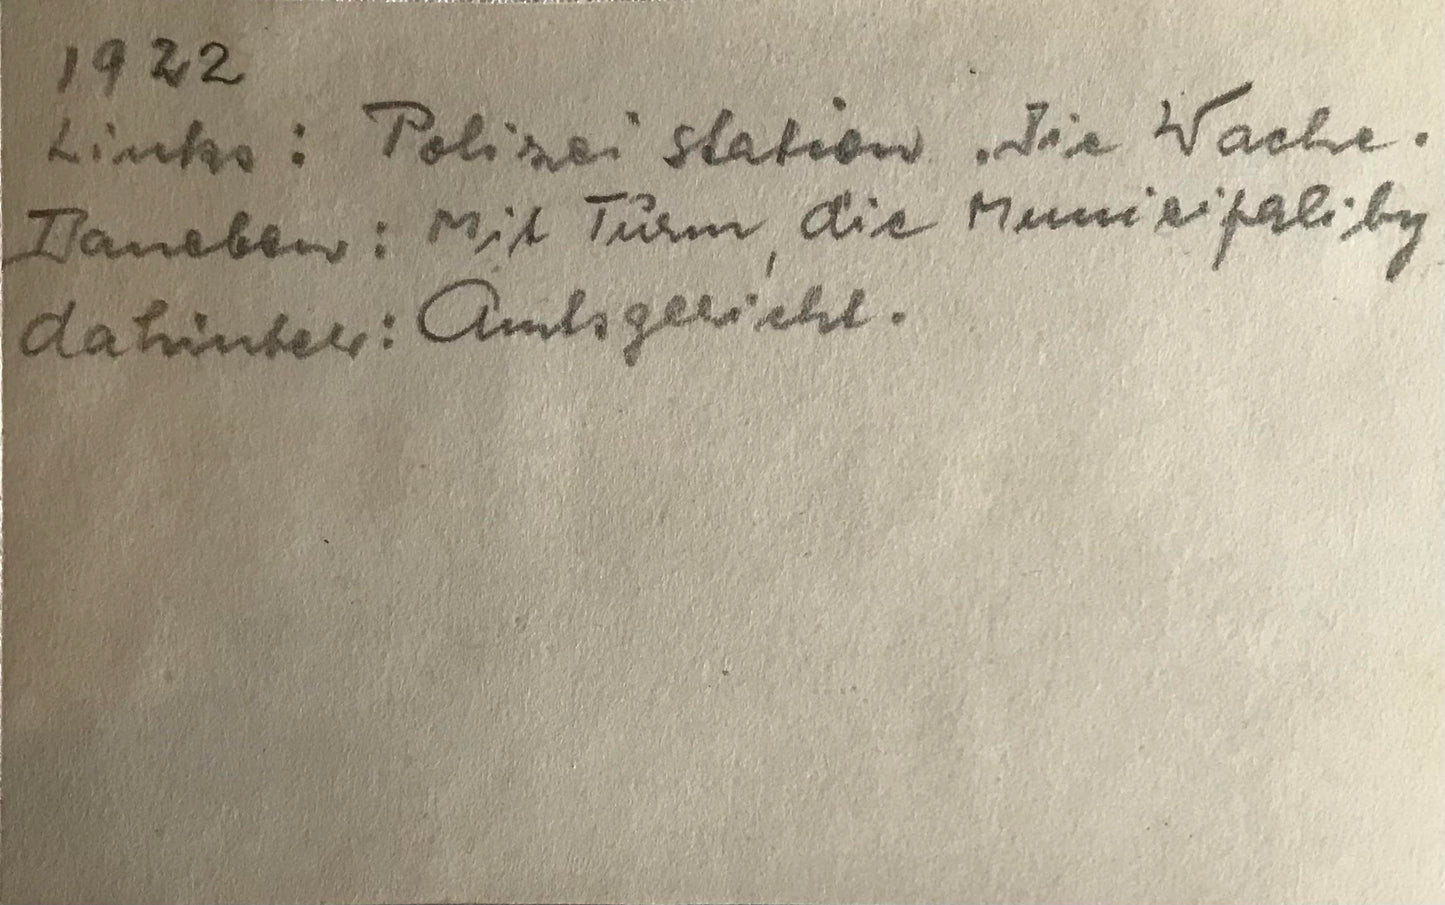 1922
Links: Polizei station. Die Wache.
Daneben: Mit Turm, die Municipality
dahinter: Amtsgericht.